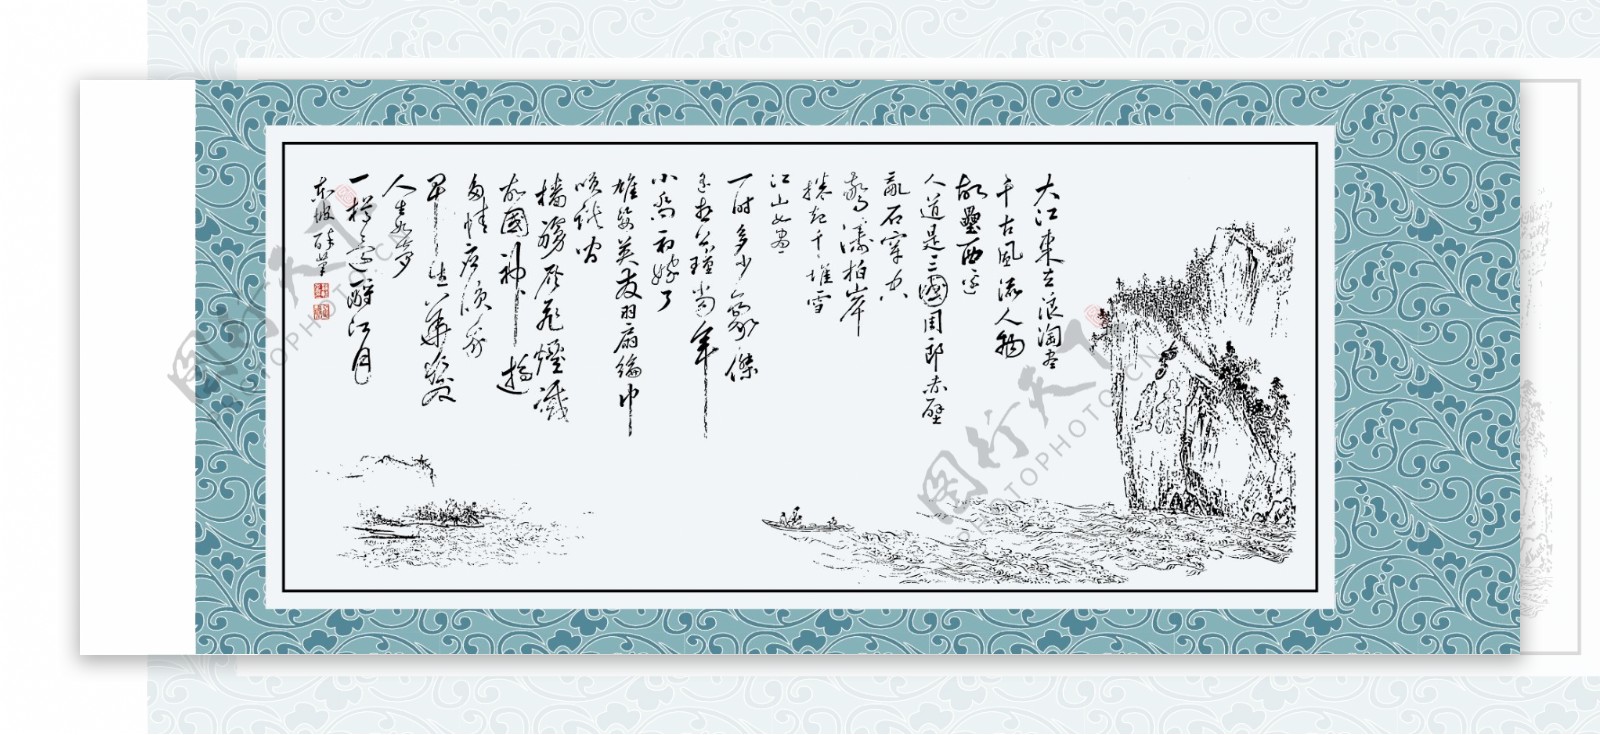 大江東去浪淘盡
千古風流人物
故壘西邊
人道是三國周郎赤壁
亂石穿空
驚濤拍岸
捲起千堆雪
江山如畫
一時多少豪傑
遙想公瑾當年
小喬初嫁了
雄姿英發羽扇綸巾
笑談間
檣艣灰飛煙滅
故國神遊
多情應笑我
早生華髮
人生如夢
一樽還酹江月
東坡醉筆
图行天下
PHOTOPHOTO.CN
图行天下
PHOTOPHOTO.CN